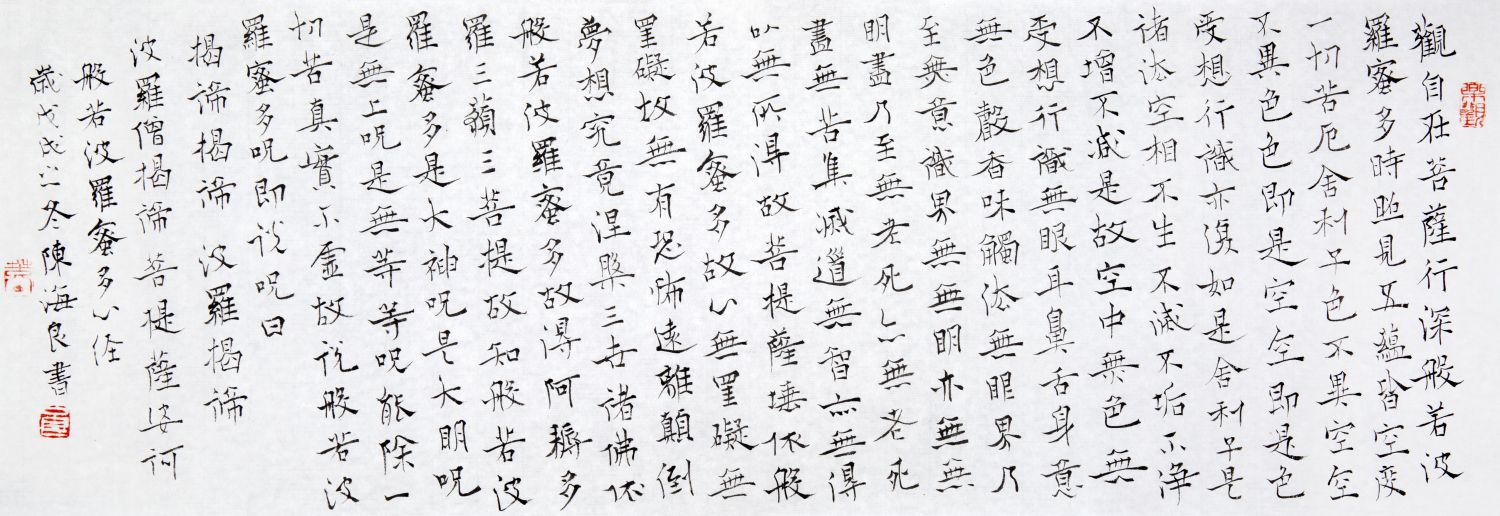 觀自在菩薩行深般若波
羅蜜多時照見五蘊皆空度
一切苦厄舍利子色不異空空
不異色色即是空空即是色
受想行識亦復如是舍利子是
諸法空相不生不滅不垢不淨
不增不減是故空中無色無
受想行識無眼耳鼻舌身意
無色聲香味觸法無眼界乃
至無意識界無無明亦無無
明盡乃至無老死亦無老死
盡無苦集滅道無智亦無得
以無所得故菩提薩埵依般
若波羅蜜多故心無罣礙無
罣礙故無有恐怖遠離顛倒
夢想究竟涅槃三世諸佛依
般若波羅蜜多故得阿耨多
羅三藐三菩提故知般若波
羅蜜多是大神呪是大明呪
是無上呪是無等等呪能除一
切苦真實不虛故說般若波
羅蜜多呪即說呪曰
揭諦揭諦 波羅揭諦
波羅僧揭諦 菩提薩婆訶
般若波羅蜜多心經
歲戊戌之冬陳海良書